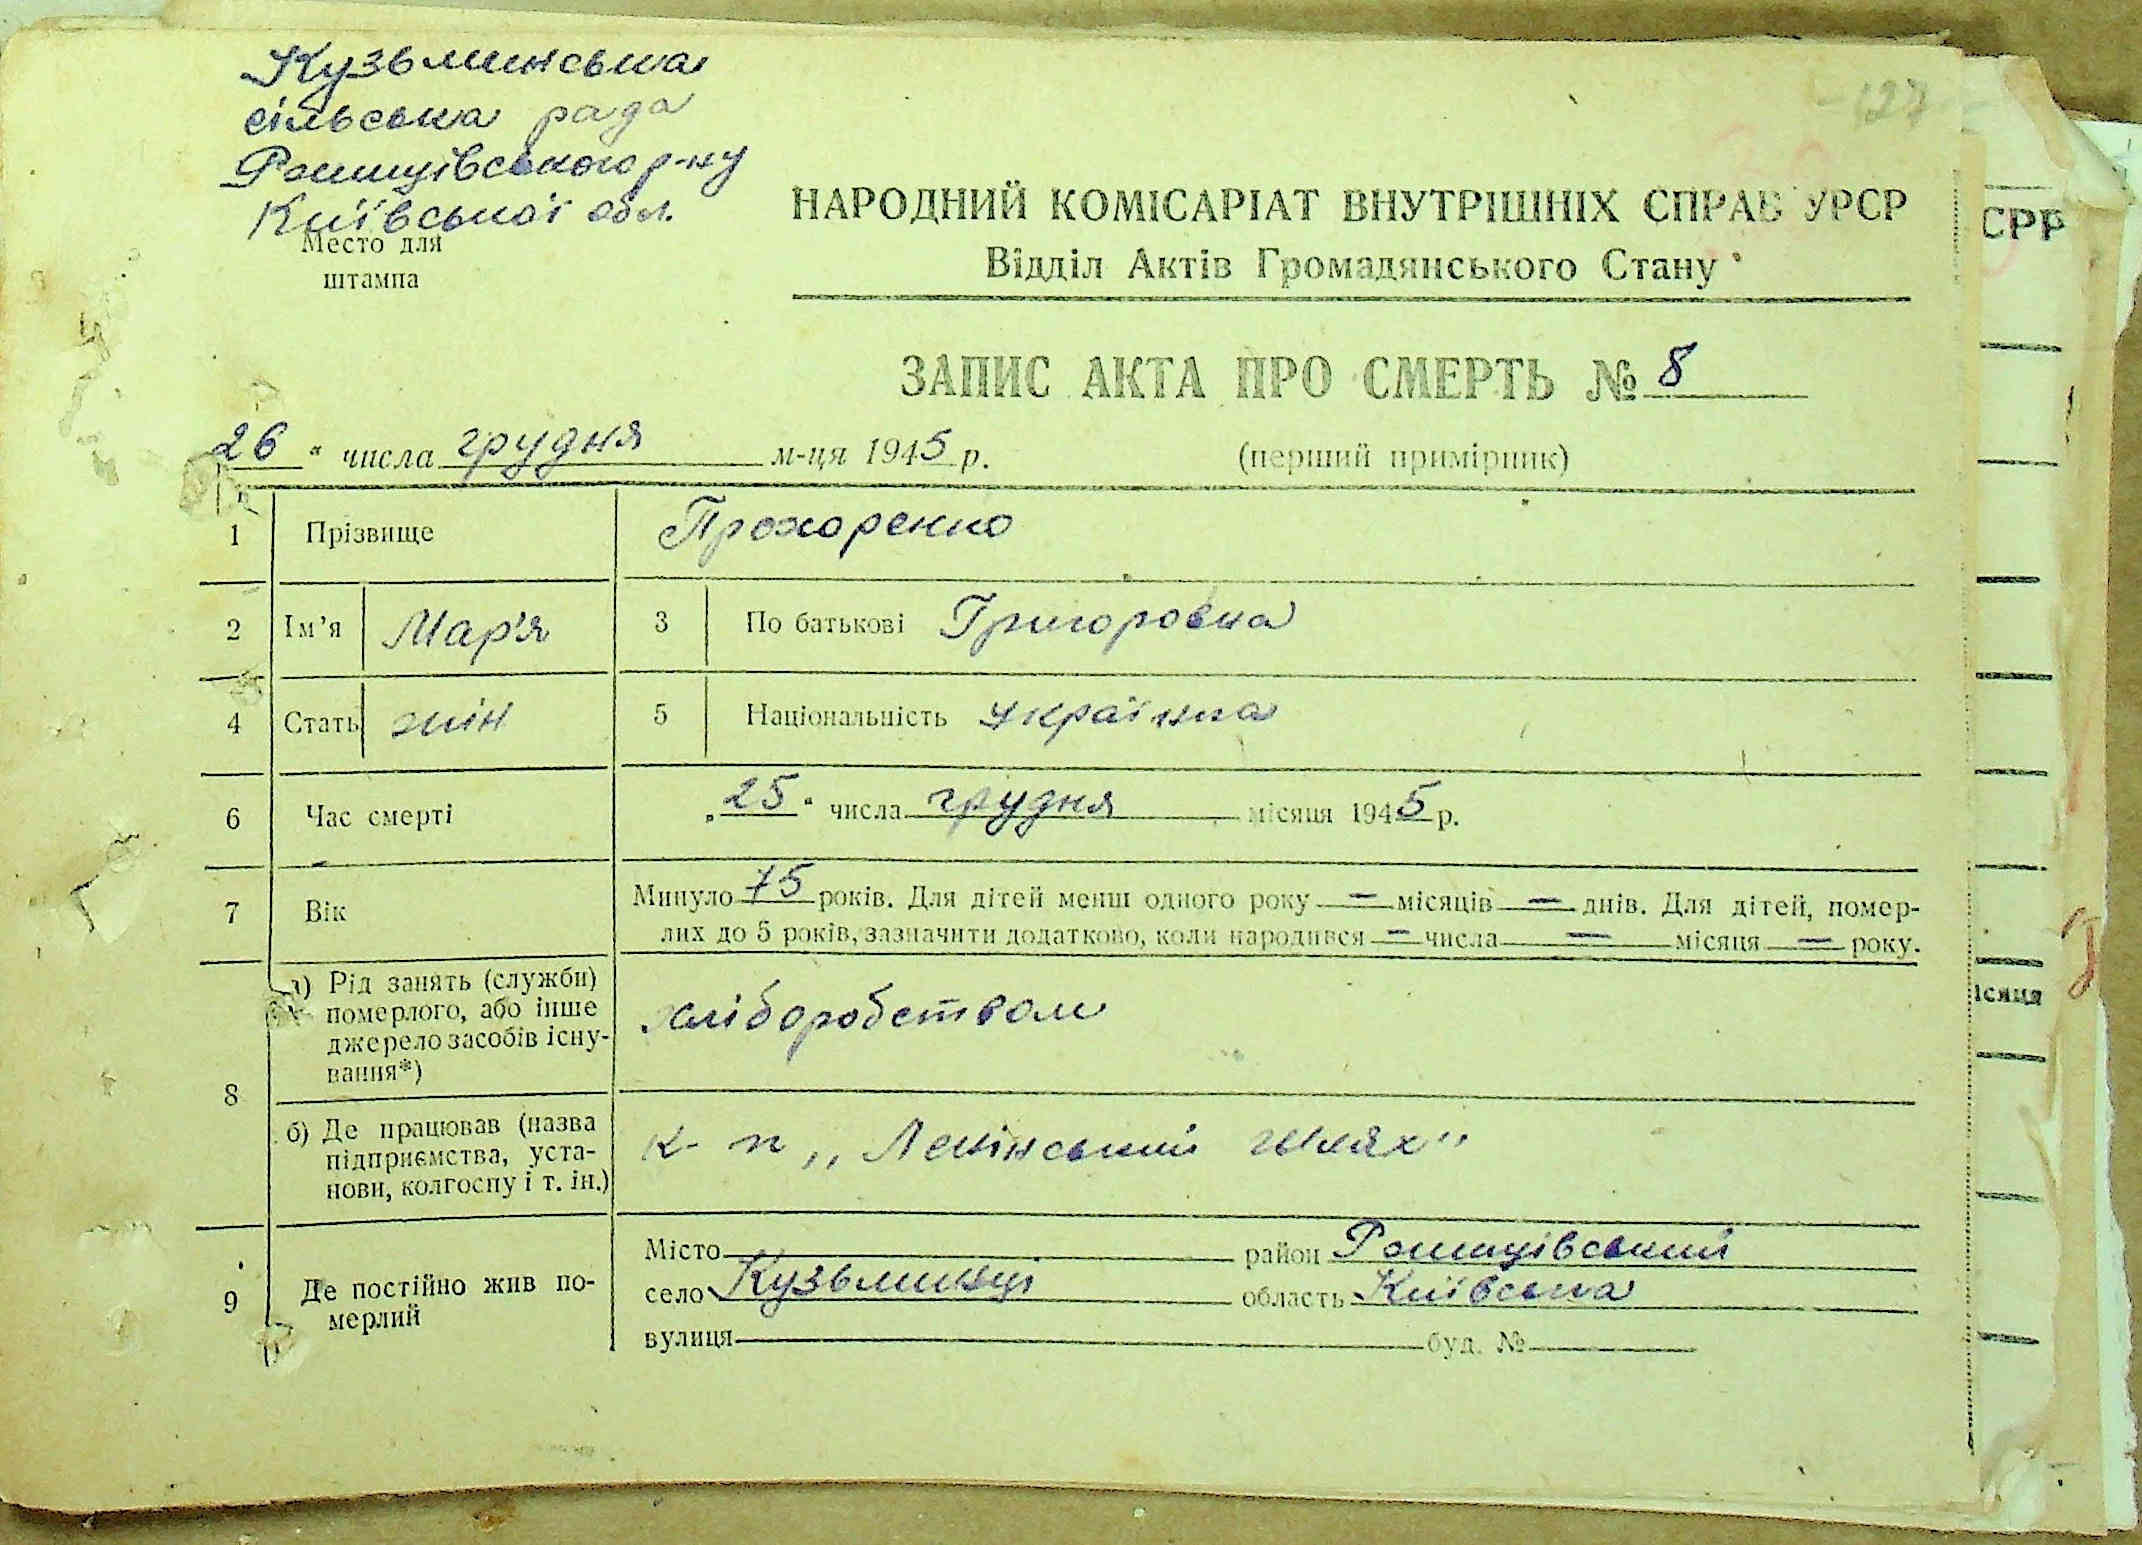 Кузьминська
сільська рада
Рокитнівського р-ну
Київської обл.
Место для
штампа
127
НАРОДНИЙ КОМІСАРІАТ ВНУТРІШНІХ СПРАВ УРСР
Відділ Актів Громадянського Стану
ЗАПИС АКТА ПРО СМЕРТЬ № 8
26 " числа грудня м-ця 1945 р. (перший примірник)
1 Прізвище Прохоренко
2 Ім'я Мар'я 3 По батькові Григоровна
4 Стать жін 5 Національність українка
6 Час смерті „25" числа грудня місяця 1945 р.
7 Вік Минуло 75 років. Для дітей менш одного року — місяців — днів. Для дітей, помер-
лих до 5 років, зазначити додатково, коли народився — числа — місяця — року.
8 а) Рід занять (служби)
померлого, або інше
джерело засобів існу-
вання*)
хліборобством
б) Де працював (назва
підприємства, уста-
нови, колгоспу і т. ін.)
к-п „Ленінський шлях"
9 Де постійно жив по-
мерлий
Місто район Рокитнівський
село Кузьминці область Київська
вулиця буд. №
СРР
ісяця